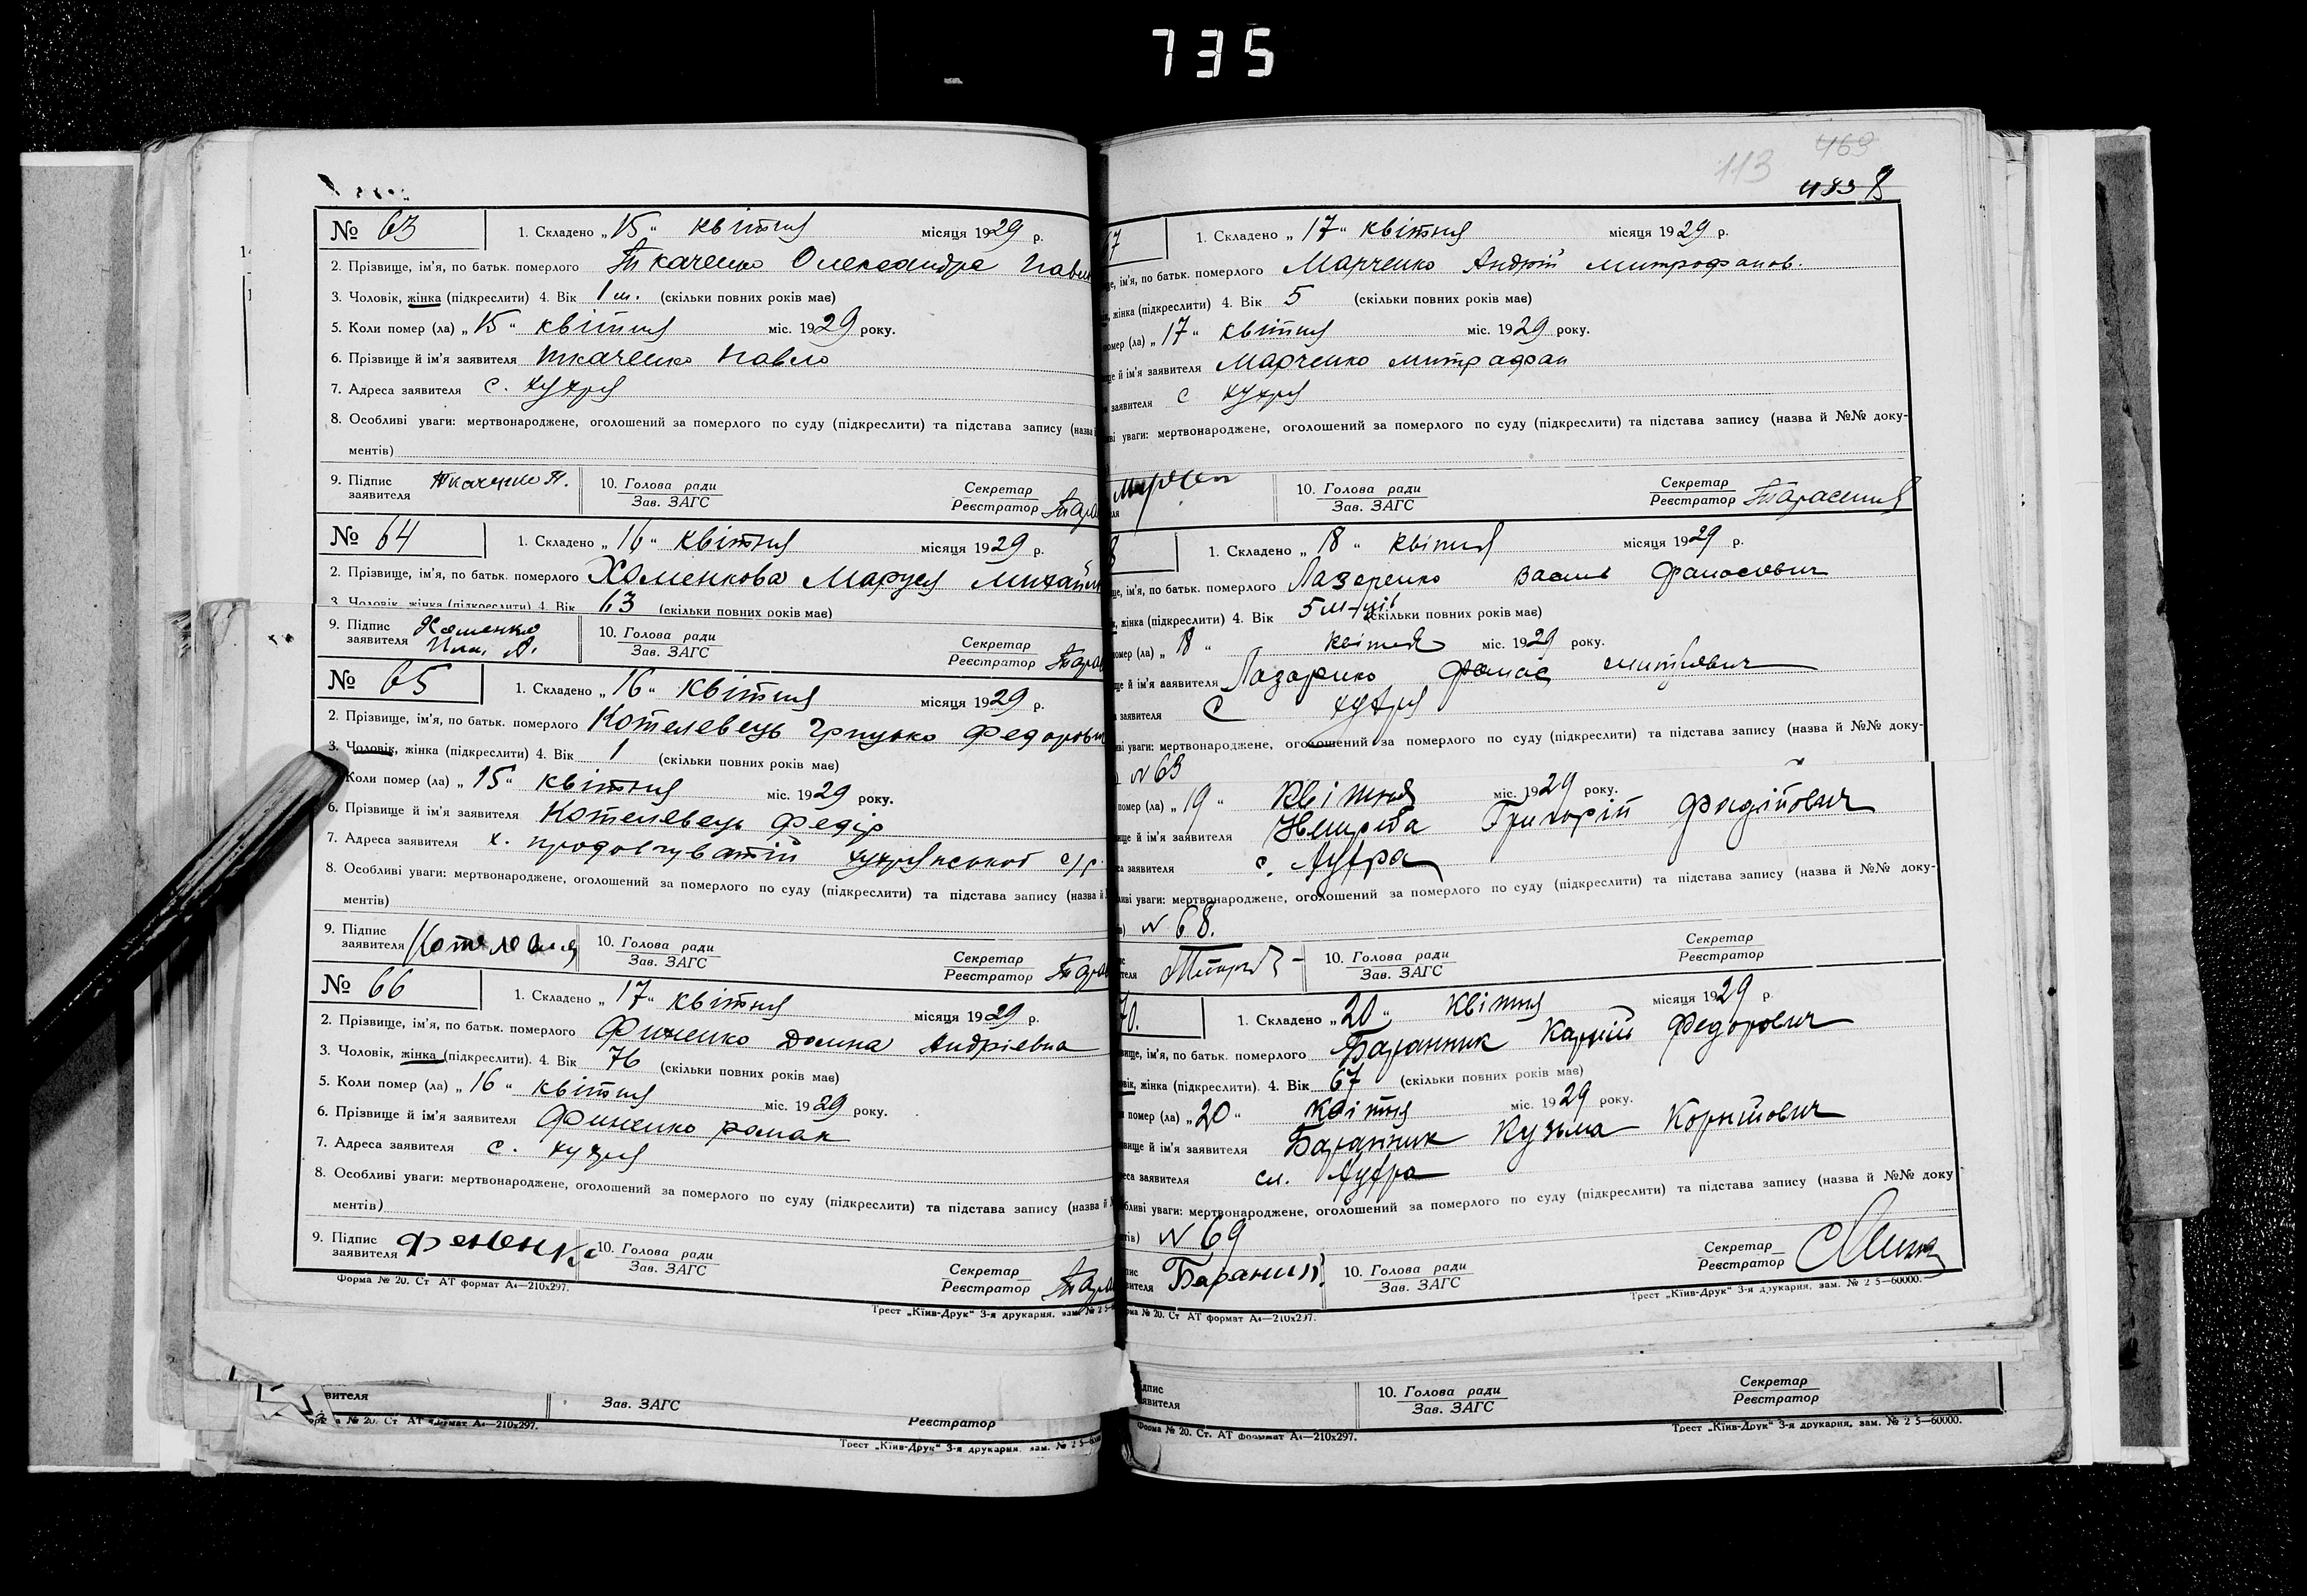 735
113 469
483
№ 63 1. Складено „15“ квітня місяця 1929 р.
2. Прізвище, ім'я, по батьк. померлого Ткаченко Олександра Павл
3. Чоловік, жінка (підкреслити) 4. Вік 1 м. (скільки повних років має)
5. Коли помер (ла) „15“ квітня міс. 1929 року.
6. Прізвище й ім'я заявителя Ткаченко Павло
7. Адреса заявителя с. Хухря
8. Особливі уваги: мертвонароджене, оголошений за померлого по суду (підкреслити) та підстава запису (назва й
ментів)
9. Підпис заявителя Ткаченко П. 10. Голова ради Зав. ЗАГС Секретар Реєстратор Тара
№ 64 1. Складено „16“ квітня місяця 1929 р.
2. Прізвище, ім'я, по батьк. померлого Хоменкова Маруся Михайл
3. Чоловік, жінка (підкреслити) 4. Вік 63 (скільки повних років має)
9. Підпис заявителя Хоменко 10. Голова ради Зав. ЗАГС Секретар Реєстратор Тара
№ 65 1. Складено „16“ квітня місяця 1929 р.
2. Прізвище, ім'я, по батьк. померлого Котелевець Грицько Федорови
3. Чоловік, жінка (підкреслити) 4. Вік 1 (скільки повних років має)
Коли помер (ла) „15“ квітня міс. 1929 року.
6. Прізвище й ім'я заявителя Котелевець Федір
7. Адреса заявителя х. Хухрянської с/р.
8. Особливі уваги: мертвонароджене, оголошений за померлого по суду (підкреслити) та підстава запису (назва й
ментів)
9. Підпис заявителя 10. Голова ради Зав. ЗАГС Секретар Реєстратор Тара
№ 66 1. Складено „17“ квітня місяця 1929 р.
2. Прізвище, ім'я, по батьк. померлого Фененко Домна Андрієвна
3. Чоловік, жінка (підкреслити). 4. Вік 76 (скільки повних років має)
5. Коли помер (ла) „16“ квітня міс. 1929 року.
6. Прізвище й ім'я заявителя Фененко Роман
7. Адреса заявителя с. Хухря
8. Особливі уваги: мертвонароджене, оголошений за померлого по суду (підкреслити) та підстава запису (назва й
ментів)
9. Підпис заявителя Фененко 10. Голова ради Зав. ЗАГС Секретар Реєстратор Тара
Форма № 20. Ст АТ формат А4—210х297.
Трест „Київ-Друк“ 3-я друкарня, зам. № 2 5—6
вителя Зав. ЗАГС Реєстратор
№ 20. Ст АТ формат А4—210х297.
Трест „Київ-Друк“ 3-я друкарня, зам. № 2 5—
7 1. Складено „17“ квітня місяця 1929 р.
ще, ім'я, по батьк. померлого Марченко Андрій Митрофанов.
жінка (підкреслити) 4. Вік 5 (скільки повних років має)
помер (ла) „17“ квітня міс. 1929 року.
ще й ім'я заявителя Марченко Митрафан
заявителя с Хухря
ві уваги: мертвонароджене, оголошений за померлого по суду (підкреслити) та підстава запису (назва й №№ доку-
10. Голова ради Зав. ЗАГС Секретар Реєстратор
8 1. Складено „18“ квітня місяця 1929 р.
ще, ім'я, по батьк. померлого Лазаренко Василь Фанасович
, жінка (підкреслити) 4. Вік 5 м-ців (скільки повних років має)
помер (ла) „18“ квітня міс. 1929 року.
ще й ім'я заявителя Лазаренко Фанас
заявителя с Хухря
ві уваги: мертвонароджене, оголошений за померлого по суду (підкреслити) та підстава запису (назва й №№ доку-
помер (ла) „19“ Квітня міс. 1929 року.
ище й ім'я заявителя Григорій
са заявителя с. Хухра
иві уваги: мертвонароджене, оголошений за померлого по суду (підкреслити) та підстава запису (назва й №№ доку-
N 68.
10. Голова ради Зав. ЗАГС Секретар Реєстратор
70. 1. Складено „20“ Квітня місяця 1929 р.
вище, ім'я, по батьк. померлого Баранник Федорович
вік, жінка (підкреслити). 4. Вік 67 (скільки повних років має)
помер (ла) „20“ Квітня міс. 1929 року.
вище й ім'я заявителя Баранник Кузьма
еса заявителя сл. Хухра
бливі уваги: мертвонароджене, оголошений за померлого по суду (підкреслити) та підстава запису (назва й №№ доку
N 69
Баранник 10. Голова ради Зав. ЗАГС Секретар Реєстратор
рма № 20. Ст АТ формат А4—210х297.
Трест „Київ-Друк“ 3-я друкарня, зам. № 2 5—60000.
дпис явителя 10. Голова ради Зав. ЗАГС Секретар Реєстратор
Форма № 20. Ст. АТ формат А4—210х297.
Трест „Київ-Друк“ 3-я друкарня, зам. № 2 5—60000.